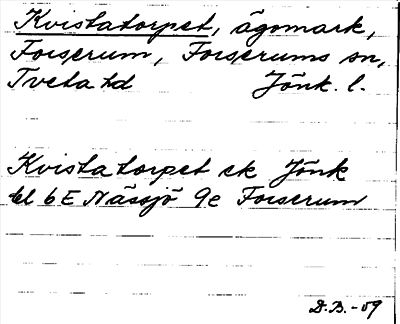 Kvistatorpet, ägomark,
Forserum, Forserums sn,
Tveta hd Jönk. l.
Kvistatorpet ek Jönk
bl 6E Nässjö 9e Forserum
D.B. -59